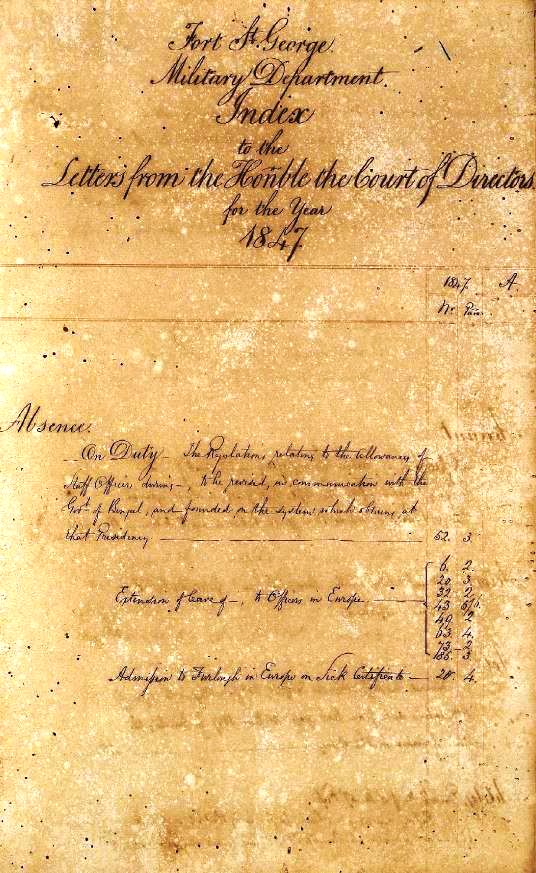 Fort St. George.
Military Department.
Index
to the
Letters from the Honble the Court of Directors
for the Year
1847.
1847. A.
No. Para.
Absence.
On Duty — The Regulations relating to the allowances of
Staff Officers during —, to be revised, in communication with the
Govt. of Bengal, and founded on the system which obtains at
that Presidency — 52. 3.
6. 2.
20 3
32. 2.
Extension of leave of —, to Officers in Europe — 43 5/6.
49. 2
63. 4.
73. 2
3.
Admission to Furlough in Europe on Sick Certificate — 20. 4.